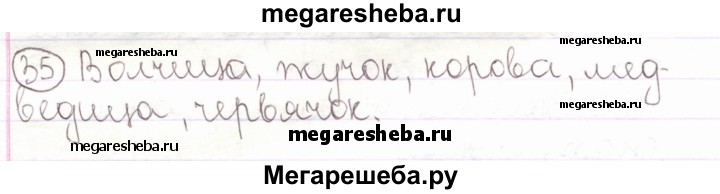 megaresheba.ru
35 Волчица, жучок, корова, мед-
ведица, червячок.
megaresheba.ru
megaresheba.ru
megaresheba.ru
megaresheba.ru
megaresheba.ru
Мегарешеба.ру